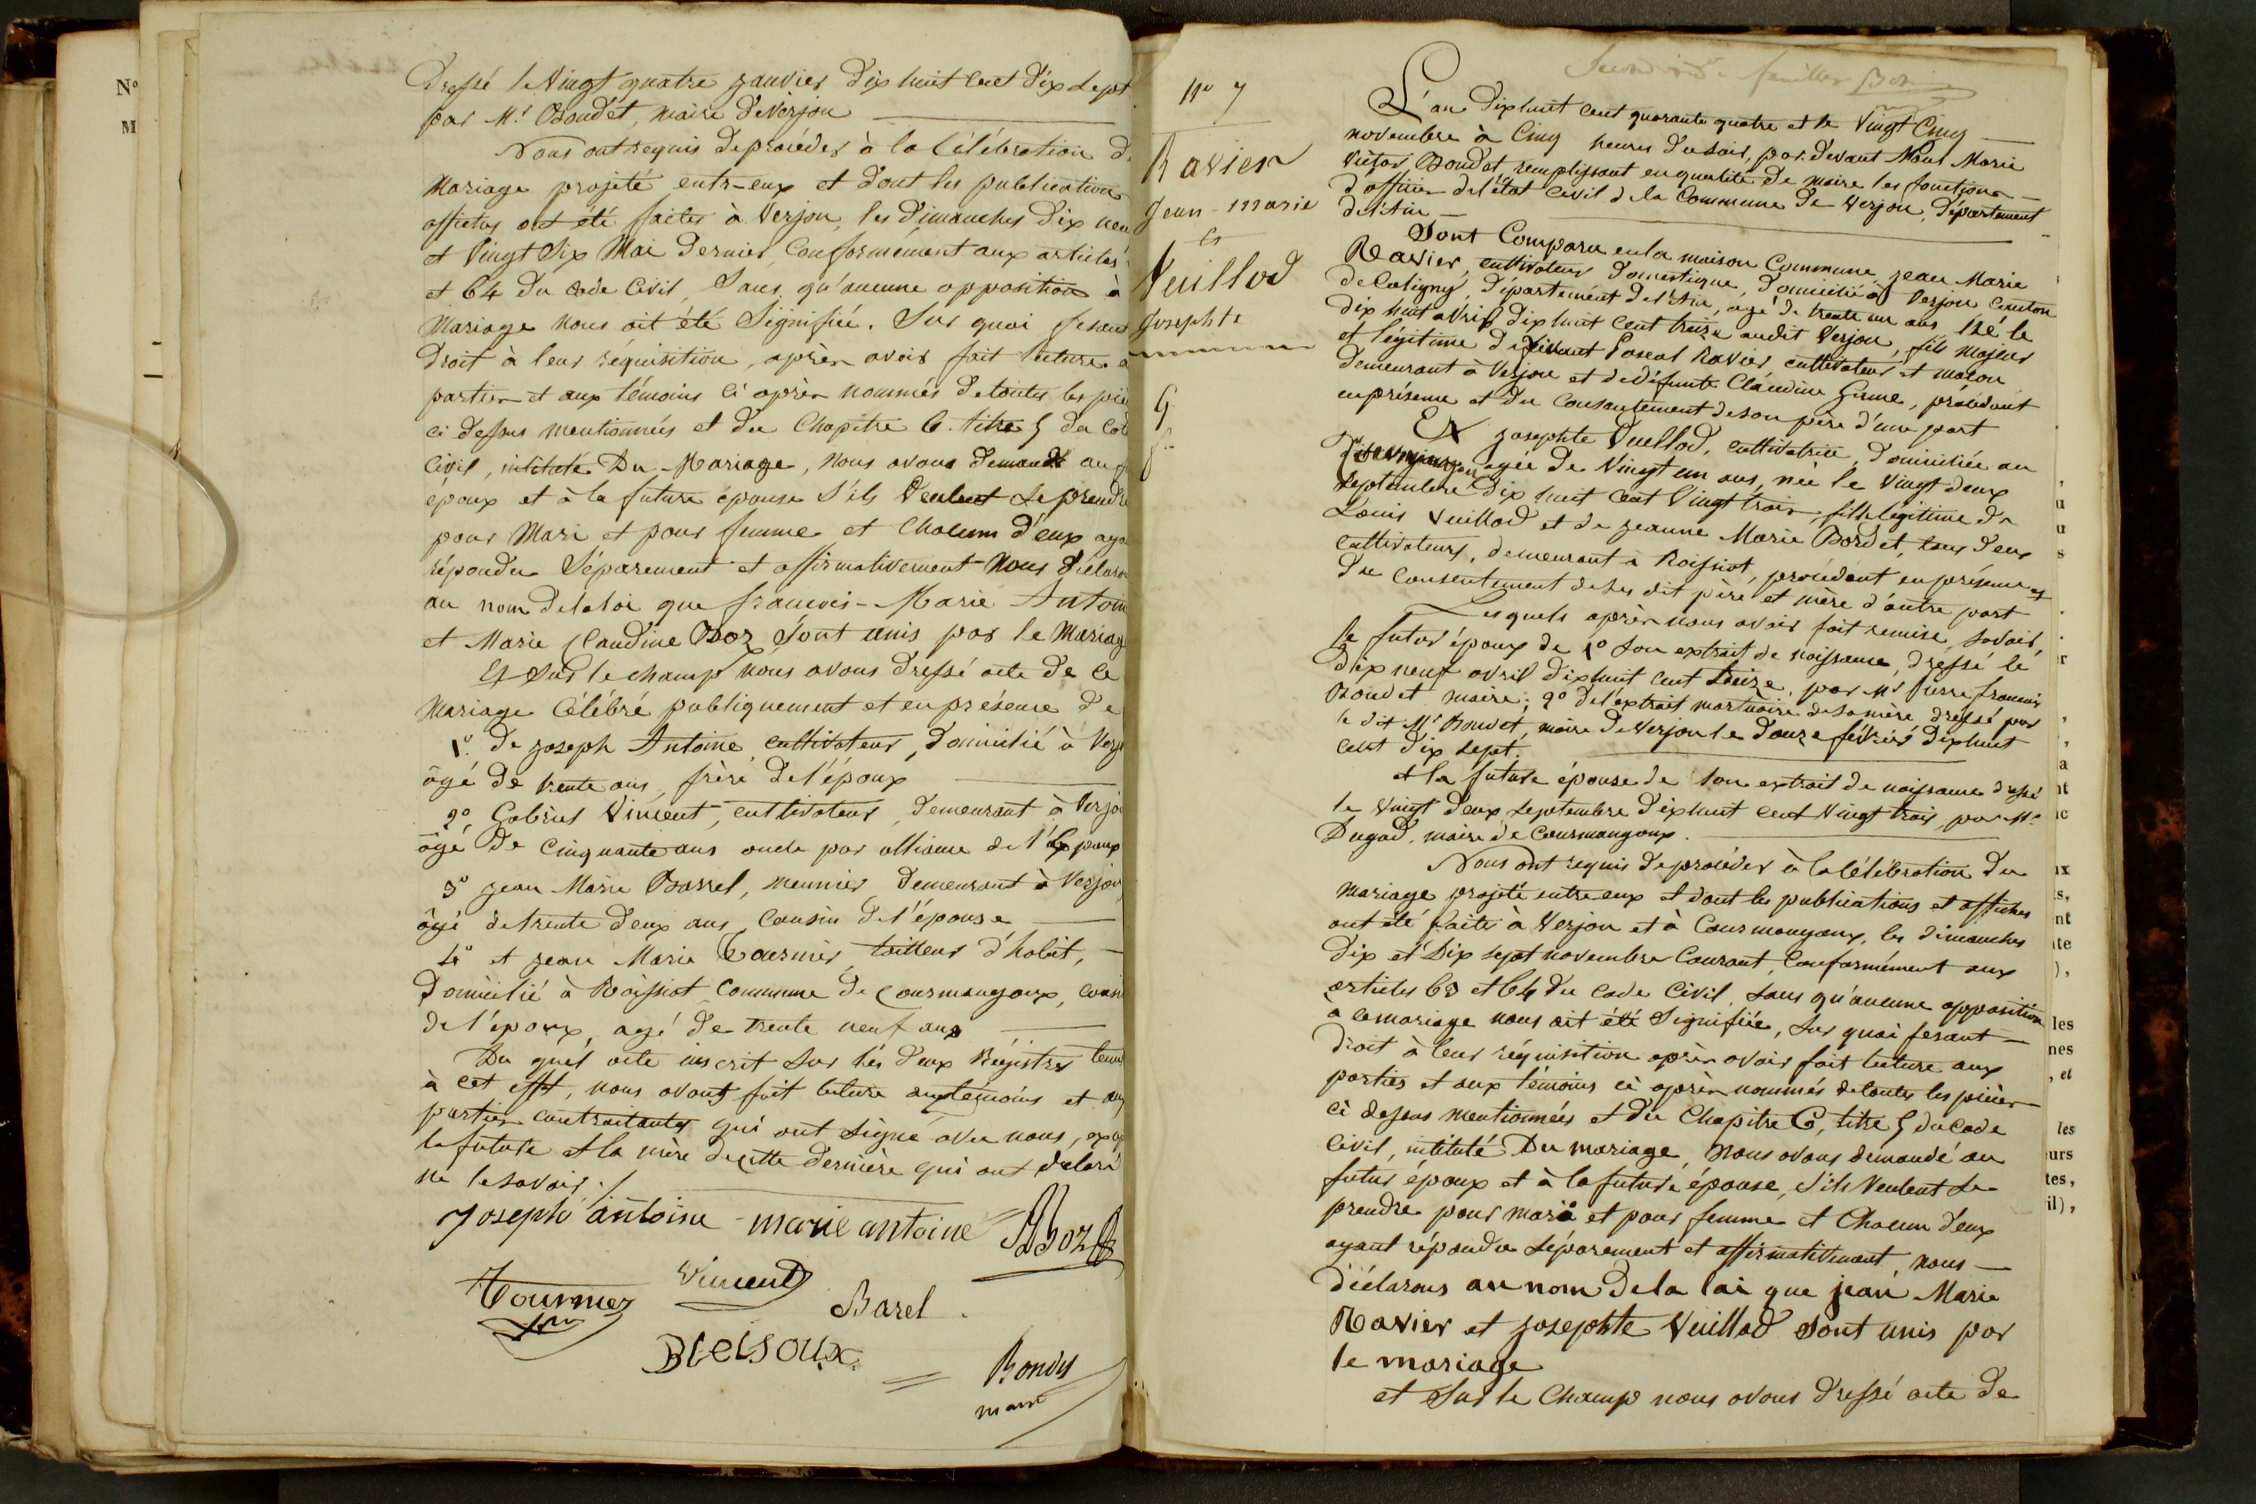 Dressé le Vingt quatre janvier dix huit cent dix sept
par Mr Boudet, maire de Verjon
Nous ont requis de procéder à la Célébration d
Mariage projeté entr-eux et dont les publications
affiches ont été faites à Verjon, les dimanches dix neu
et Vingt Six Mai dernier, Conformément aux articles
et 64 du Code Civil, Sans qu'aucune opposition à
Mariage nous ait été Signifiée. Sur quoi fesant
droit à leur réquisition, après avoir fait lecture a
parties et aux témoins ci après nommés de toutes les piè
ci dessus mentionnées et du Chapitre 6. titre 5 du Cod
Civil, intitulé Du Mariage, nous avons demandé au f
époux et à la future épouse S'ils Veulent se prendre
pour Mari et pour femme et Chacun d'eux aya
répondu Séparement et affirmativement Nous déclaro
au nom de la loi que françois-Marie Antoin
et Marie Claudine Boz Sont unis par le Mariag
Et Sur le champ nous avons dressé acte de ce
Mariage Célébré publiquement et en présence de
1° De joseph Antoine cultivateur, domicilié à Verj
âgé de trente ans, frère de l'époux
2° Gabriel Vincent, cultivateur, demeurant à Verjo
âgé De Cinquante ans oncle par alliance de l'Epoux
3° jean Marie Barrel, meunier, demeurant à Verjon,
âgé de trente deux ans Cousin de l'épouse
4° et jean Marie Tournier, tailleur d'habit,
Domicilié à Roissiat Commune de Courmangoux, Cousi
de l'époux, agé de trente neuf ans
Du quel acte inscrit Sur les deux Régistres tenus
à cet effet, nous avons fait lecture aux témoins et aux
parties contractantes qui ont Signé avec nous, exc
la future et la mère de cette dernière qui ont déclaré
ne le savoir ./.
Joseph antoine - marie antoine Boz
Tournier Vincent Barel
Bleisoux
Boudet
maire
No 7
Ravier
Jean-Marie
et
Vuillod
Josephte
L'an dix huit cent quarante quatre et le Vingt Cinq
novembre à Cinq heures du soir, par devant Nous Marie
Victor Boudet remplissant en qualité de maire les fonctions
d'officier de l'état Civil de la Commune de Verjon, département
de l'Ain
Sont Comparu en la maison Commune, jean Marie
Ravier, cultivateur domestique, domicilié à Verjon Canton
de Coligny, département de l'Ain, agé de trente un ans né le
dix huit avril dix huit Cent treize audit Verjon, fils majeur
et légitime de Pascal Ravier cultivateur et maçon
demeurant à Verjon et de défunte Claudine Gume, procédant
en présence et du Consentement de son père d'une part
Et josephte Vuillod, cultivatrice, domiciliée au
dit Verjon agée de Vingt un ans, née le Vingt deux
Septembre dix huit Cent Vingt trois, fille légitime de
Louis Vuillod et de jeanne Marie Bordet, tous deux
cultivateurs, demeurant à Roissiat, procédant en présence et
du Consentement de ses dit père et mère d'autre part
Lesquels après nous avoir fait remise, Savoir,
le futur époux de 1° Son extrait de naissance, dressé le
dix neuf avril dix huit Cent treize, par Mr Pierre françois
Boudet maire; 2° de l'extrait mortuaire de sa mère dressé par
le dit Mr Boudet, maire de Verjon le douze février dix huit
cent dix sept.
et la future épouse de Son extrait de naissance dressé
le Vingt deux Septembre dix huit Cent Vingt trois, par Mr
Dugad, maire de Courmangoux.
Nous ont requis de procéder à la Célébration du
mariage projeté entre eux et dont les publications et affiches
ont été faites à Verjon et à Courmangoux, les dimanches
dix et dix sept novembre Courant, Conformément aux
articles 63 et 64 du Code Civil. Sans qu'aucune opposition
à ce mariage nous ait été Signifiée, Sur quoi fesant
droit à leur réquisition après avoir fait lecture aux
parties et aux témoins ci après nommés de toutes les pièces
ci dessus mentionnées et du Chapitre 6, titre 5 du Code
Civil, intitulé Du mariage, nous avons demandé au
futur époux et à la future épouse, S'ils Veulent se
prendre pour mari et pour femme et Chacun d'eux
ayant répondu Séparement et affirmativement, nous
déclarons au nom de la loi que jean Marie
Ravier et josephte Vuillod Sont unis par
le mariage
et Sur le Champ nous avons dressé acte de